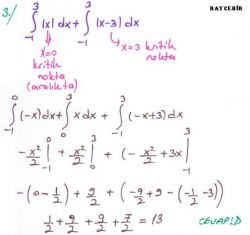 BATCEBİR
3./ ∫_{-1}^{3} |x| dx + ∫_{-1}^{3} |x-3| dx
x=0 kritik nokta (aralıkta)
x=3 kritik nokta
∫_{-1}^{0} (-x) dx + ∫_{0}^{3} x dx + ∫_{-1}^{3} (-x+3) dx
-x²/2 |_{-1}^{0} + x²/2 |_{0}^{3} + (-x²/2 + 3x |_{-1}^{3}
-(0-1/2) + 9/2 + (-9/2+9-(-1/2-3))
1/2 + 9/2 + 9/2 + 7/2 = 13 CEVAP: D